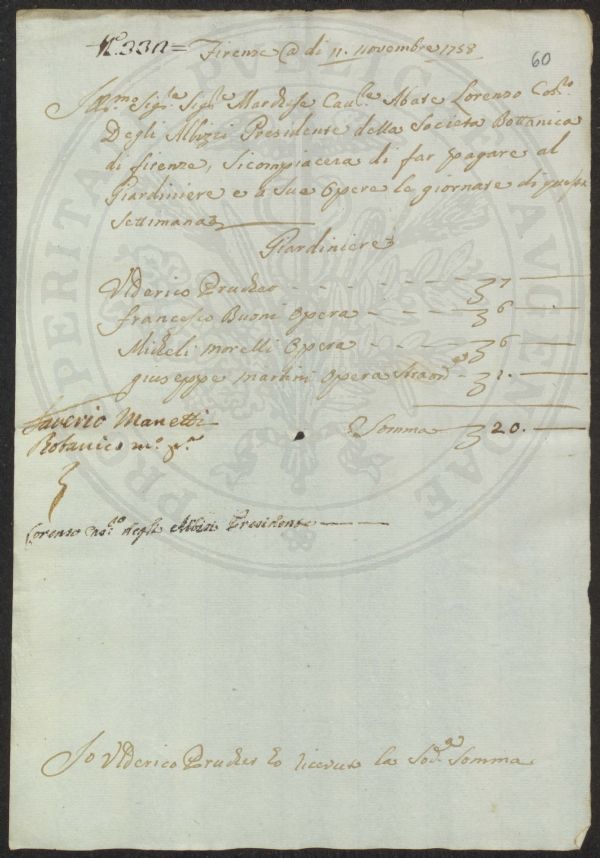 N.° 330 = Firenze @ di 11. Novembre 1758
60
Ill.mo Sig.re Sig.re Marchese Cau.re Abate Lorenzo Cos.to
Degli Albizzi Presidente della Società Bottanica
di firenze, si compiacera di far pagare al
Giardiniere e a sue Opere le giornate di questa
Settimana
Giardiniere
Vlderico Prucker - - - - - - 7 —
francesco Buoni Opera - - - - 6 —
Micheli Morelli Opera - - - - 6 —
giuseppe Martini Opera Straord.a - 1. —
Somma 20. —
Saverio Manetti
Botanico m.o p.a
Lorenzo Ma.to degli Albizi Presidente
Io Vlderico Prucker ho riceuto la Sod.a Somma
PROSPERITATI PVBLICAE AVGENDAE